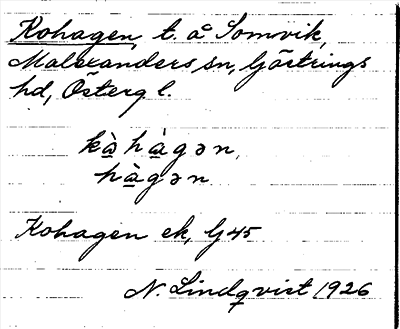 Kohagen, t. å Somvik,
Malexanders sn, Göstrings
hd, Östergl.
kàhàgən,
hàgən
Kohagen ek, G45
N. Lindqvist 1926